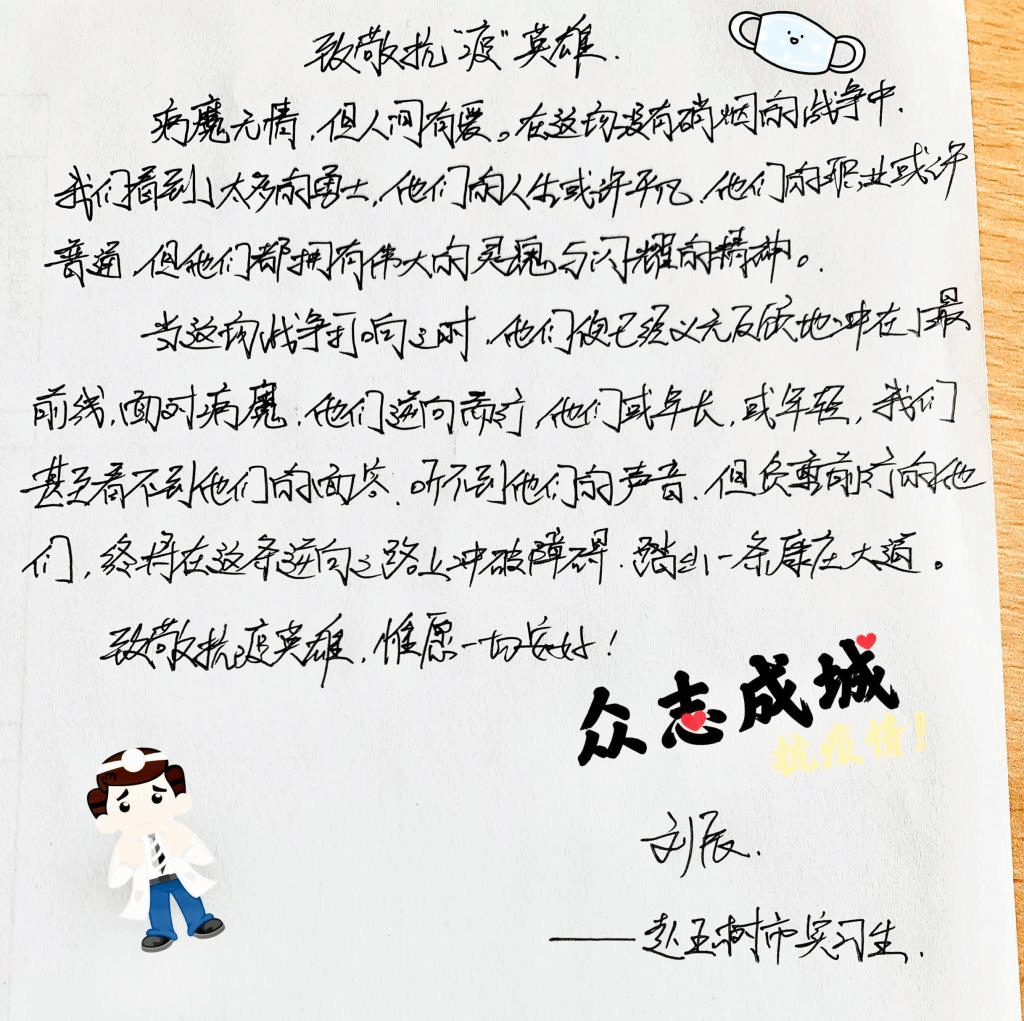 致敬抗“疫”英雄.
病魔无情,但人间有爱。在这场没有硝烟的战争中,
我们看到太多的勇士,他们的人生或许平凡,他们的职业或许
普通,但他们都拥有伟大的灵魂与闪耀的精神。
当这场战争打响之时,他们便已经义无反顾地冲在了最
前线,面对病魔,他们逆向而行,他们或年长,或年轻,我们
甚至看不到他们的面容,听不到他们的声音,但负重前行的他
们,终将在这条逆向之路上冲破障碍,踏出一条康庄大道。
致敬抗疫英雄,惟愿一切安好!
众志成城
抗疫情!
刘辰.
——赴玉树市实习生.